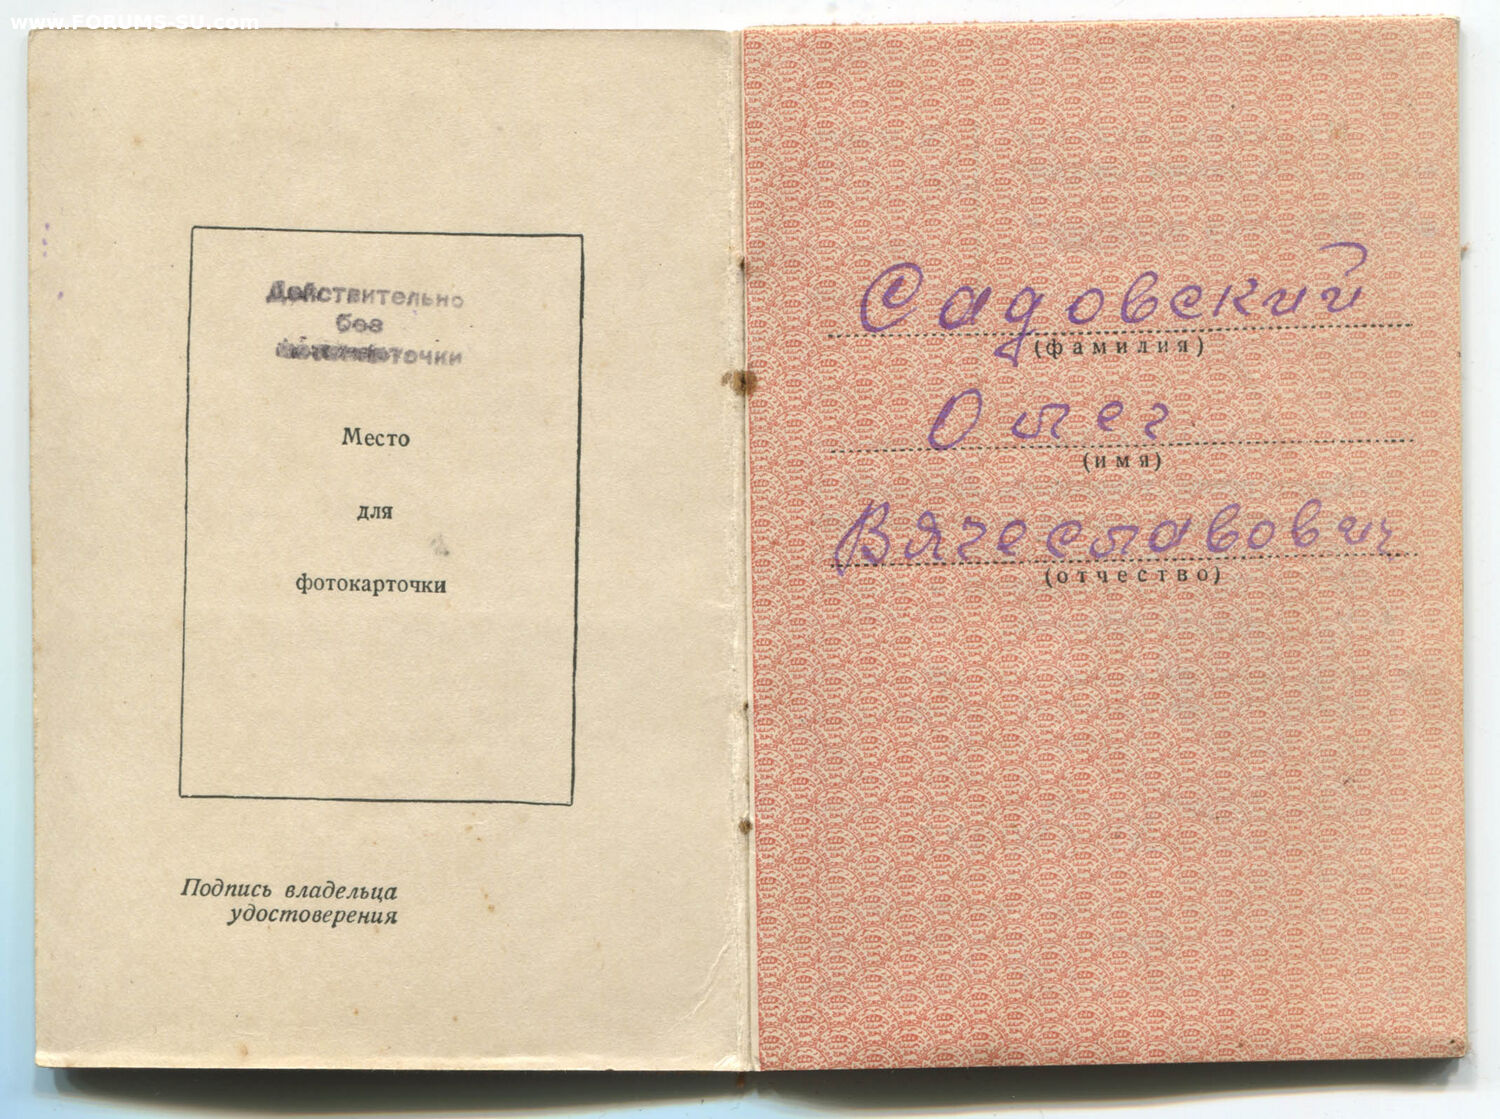 www.FORUMS-SU.com
Действительно
без
фотокарточки
Место
для
фотокарточки
Подпись владельца
удостоверения
Садовский
(фамилия)
Олег
(имя)
Вячеславович
(отчество)